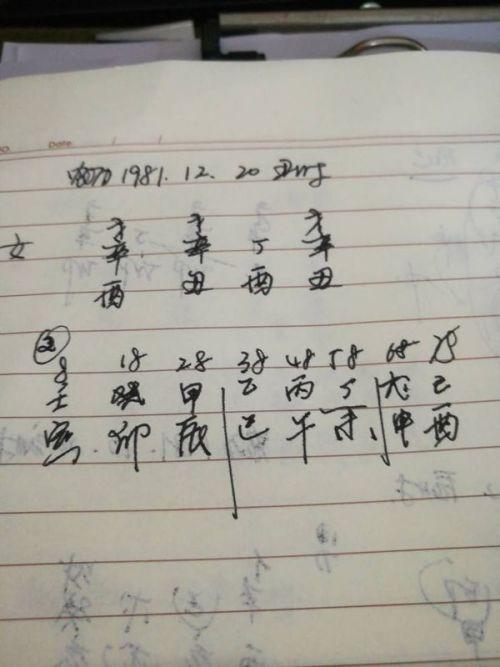 Date / /
阴历1981.12.20 丑时
才 才 才
女 辛 辛 丁 辛
酉 丑 酉 丑
8 18 28 38 48 58 68 78
壬 癸 甲 乙 丙 丁 戊 己
寅 卯 辰 巳 午 未、 申 酉